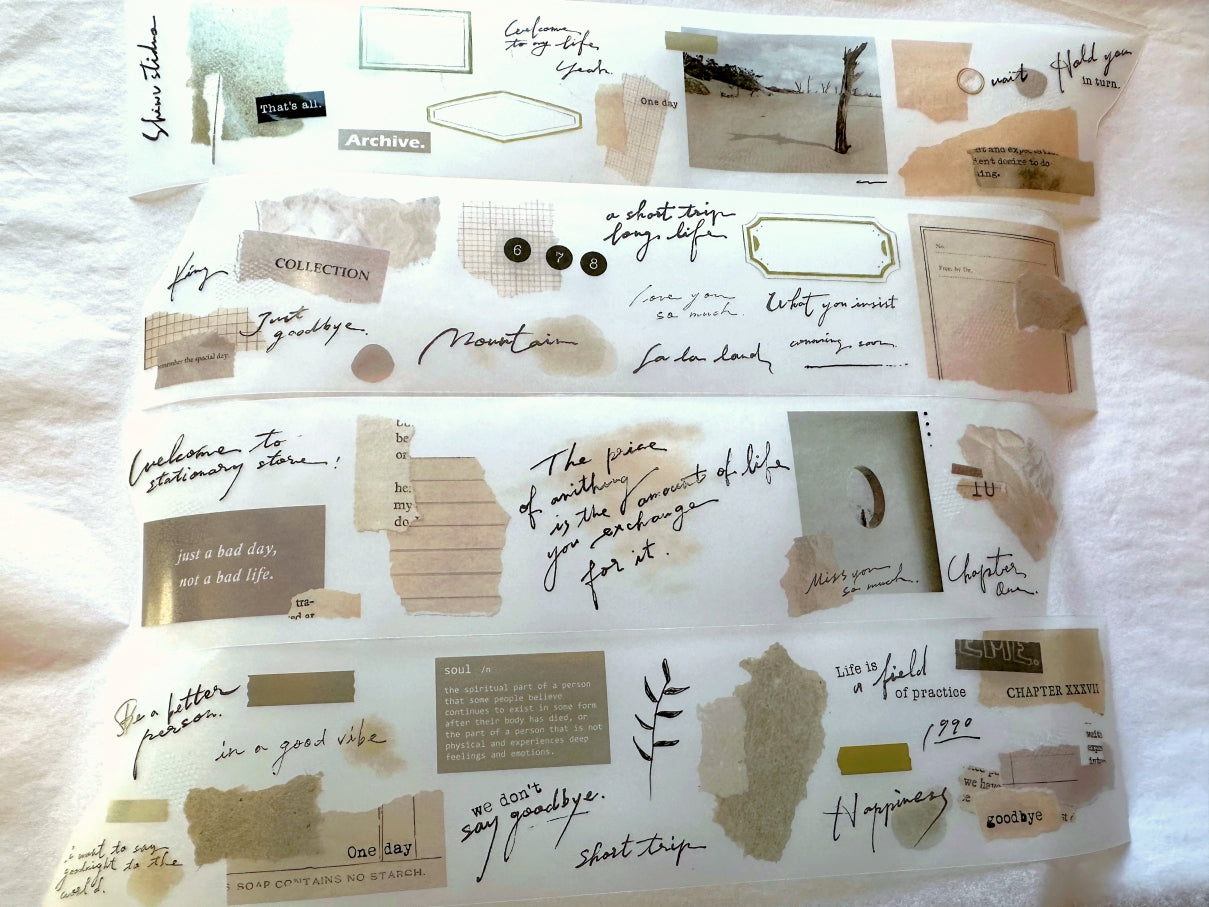 That's all.
Archive.
Welcome
to my life
Yeah.
One day
wait
Hold you
in turn.
ient desire to do
ing.
King
COLLECTION
Just
goodbye.
emember the special day.
6 7 8
Mountain
a short trip
longs life
Love you
so much.
What you insist
comming soon.
La la land
No.
Welcome to
stationary store!
just a bad day,
not a bad life.
tra-
be
or
he;
my
do
The price
of anithing
is the amount of life
you exchange
for it.
Miss you
so much.
Chapter
One.
Be a better
person.
in a good vibe
i want to say
goodnight to the
world.
One day
SOAP CONTAINS NO STARCH.
soul /n
the spiritual part of a person
that some people believe
continues to exist in some form
after their body has died, or
the part of a person that is not
physical and experiences deep
feelings and emotions.
we don't
say goodbye.
short trip
Life is
a field
of practice
1990
Happiness
EME.
CHAPTER XXXVII
we have
goodbye